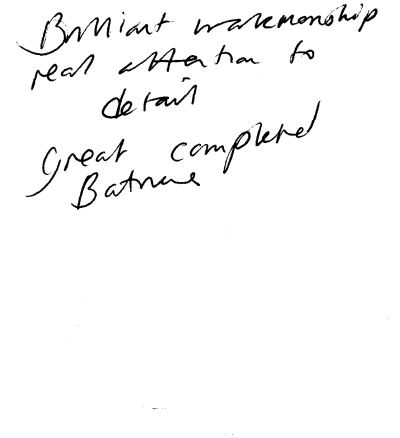 Brilliant workmanship
real attention to
detail
Great completed